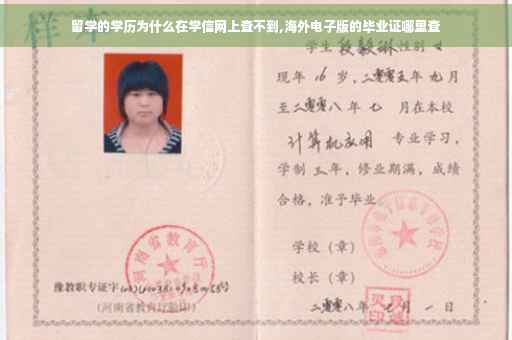 留学的学历为什么在学信网上查不到,海外电子版的毕业证哪里查
样本
学生段毅琳性别女
现年16岁,二零零五年九月
至二零零八年七月在本校
计算机应用 专业学习,
学制三年,修业期满,成绩
合格,准予毕业
学校(章)
校长(章)
二零零八年七月一日
河南省教育厅
豫教职专证字
(河南省教育厅验印)